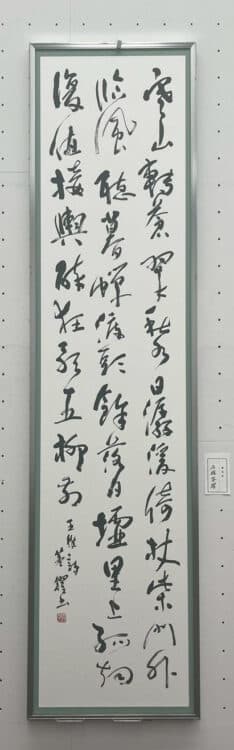 寒山轉蒼翠秋水日潺湲倚杖柴門外
臨風聽暮蟬渡頭餘落日墟里上孤烟
復值接輿醉狂歌五柳前
王維詩